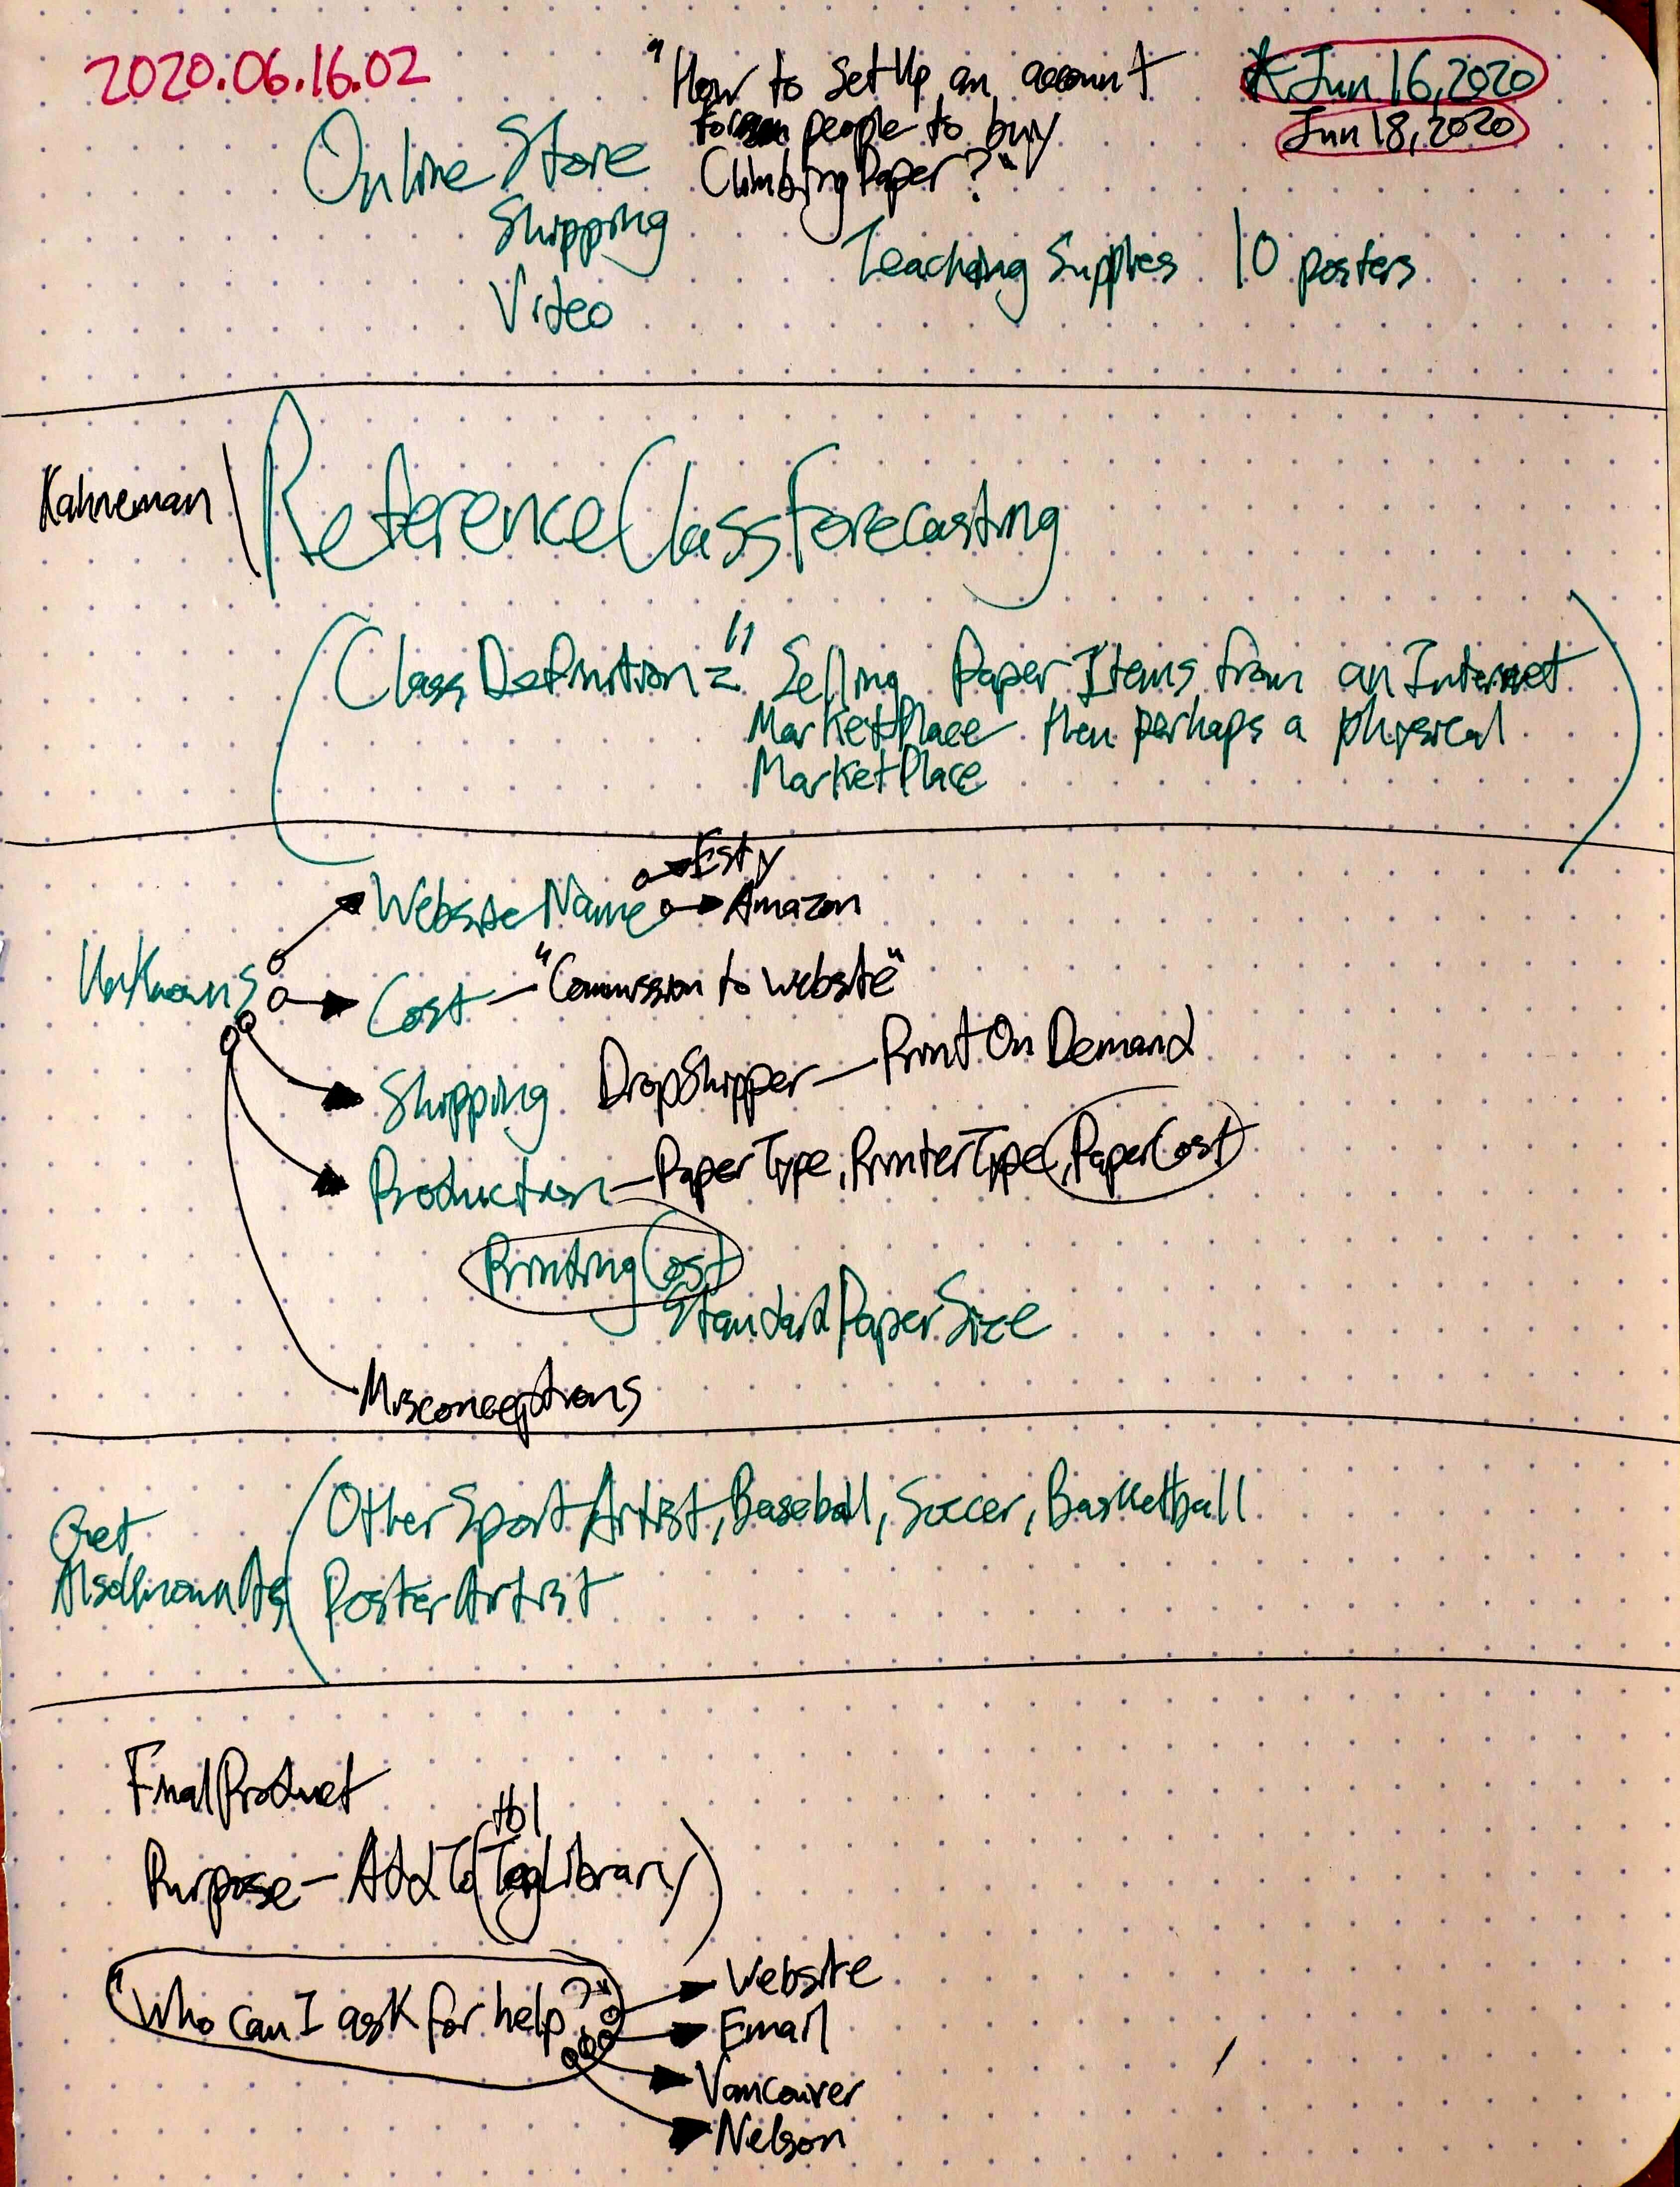 2020.06.16.02
"How to SetUp an account
for people to buy
Climbing Paper?"
*Jun 16, 2020
Jun 18, 2020
Online Store
Shipping
Video
Teaching Supplies 10 posters
Kahneman
ReferenceClassForecasting
ClassDefinition = "Selling Paper Items from an Internet
MarketPlace then perhaps a physical
MarketPlace
Unknowns
WebsiteName
Esty
Amazon
Cost - "Commission to Website"
Shipping DropShipper - PrintOnDemand
Production - PaperType, PrinterType, PaperCost
PrintingCost
StandardPaperSize
Misconceptions
Get
AlsoKnownAs
OtherSportArtist, Baseball, Soccer, Basketball
PosterArtist
FinalProduct
tbl
Purpose - AddTo(TagLibrary)
"Who can I ask for help?"
Website
Email
Vancouver
Nelson